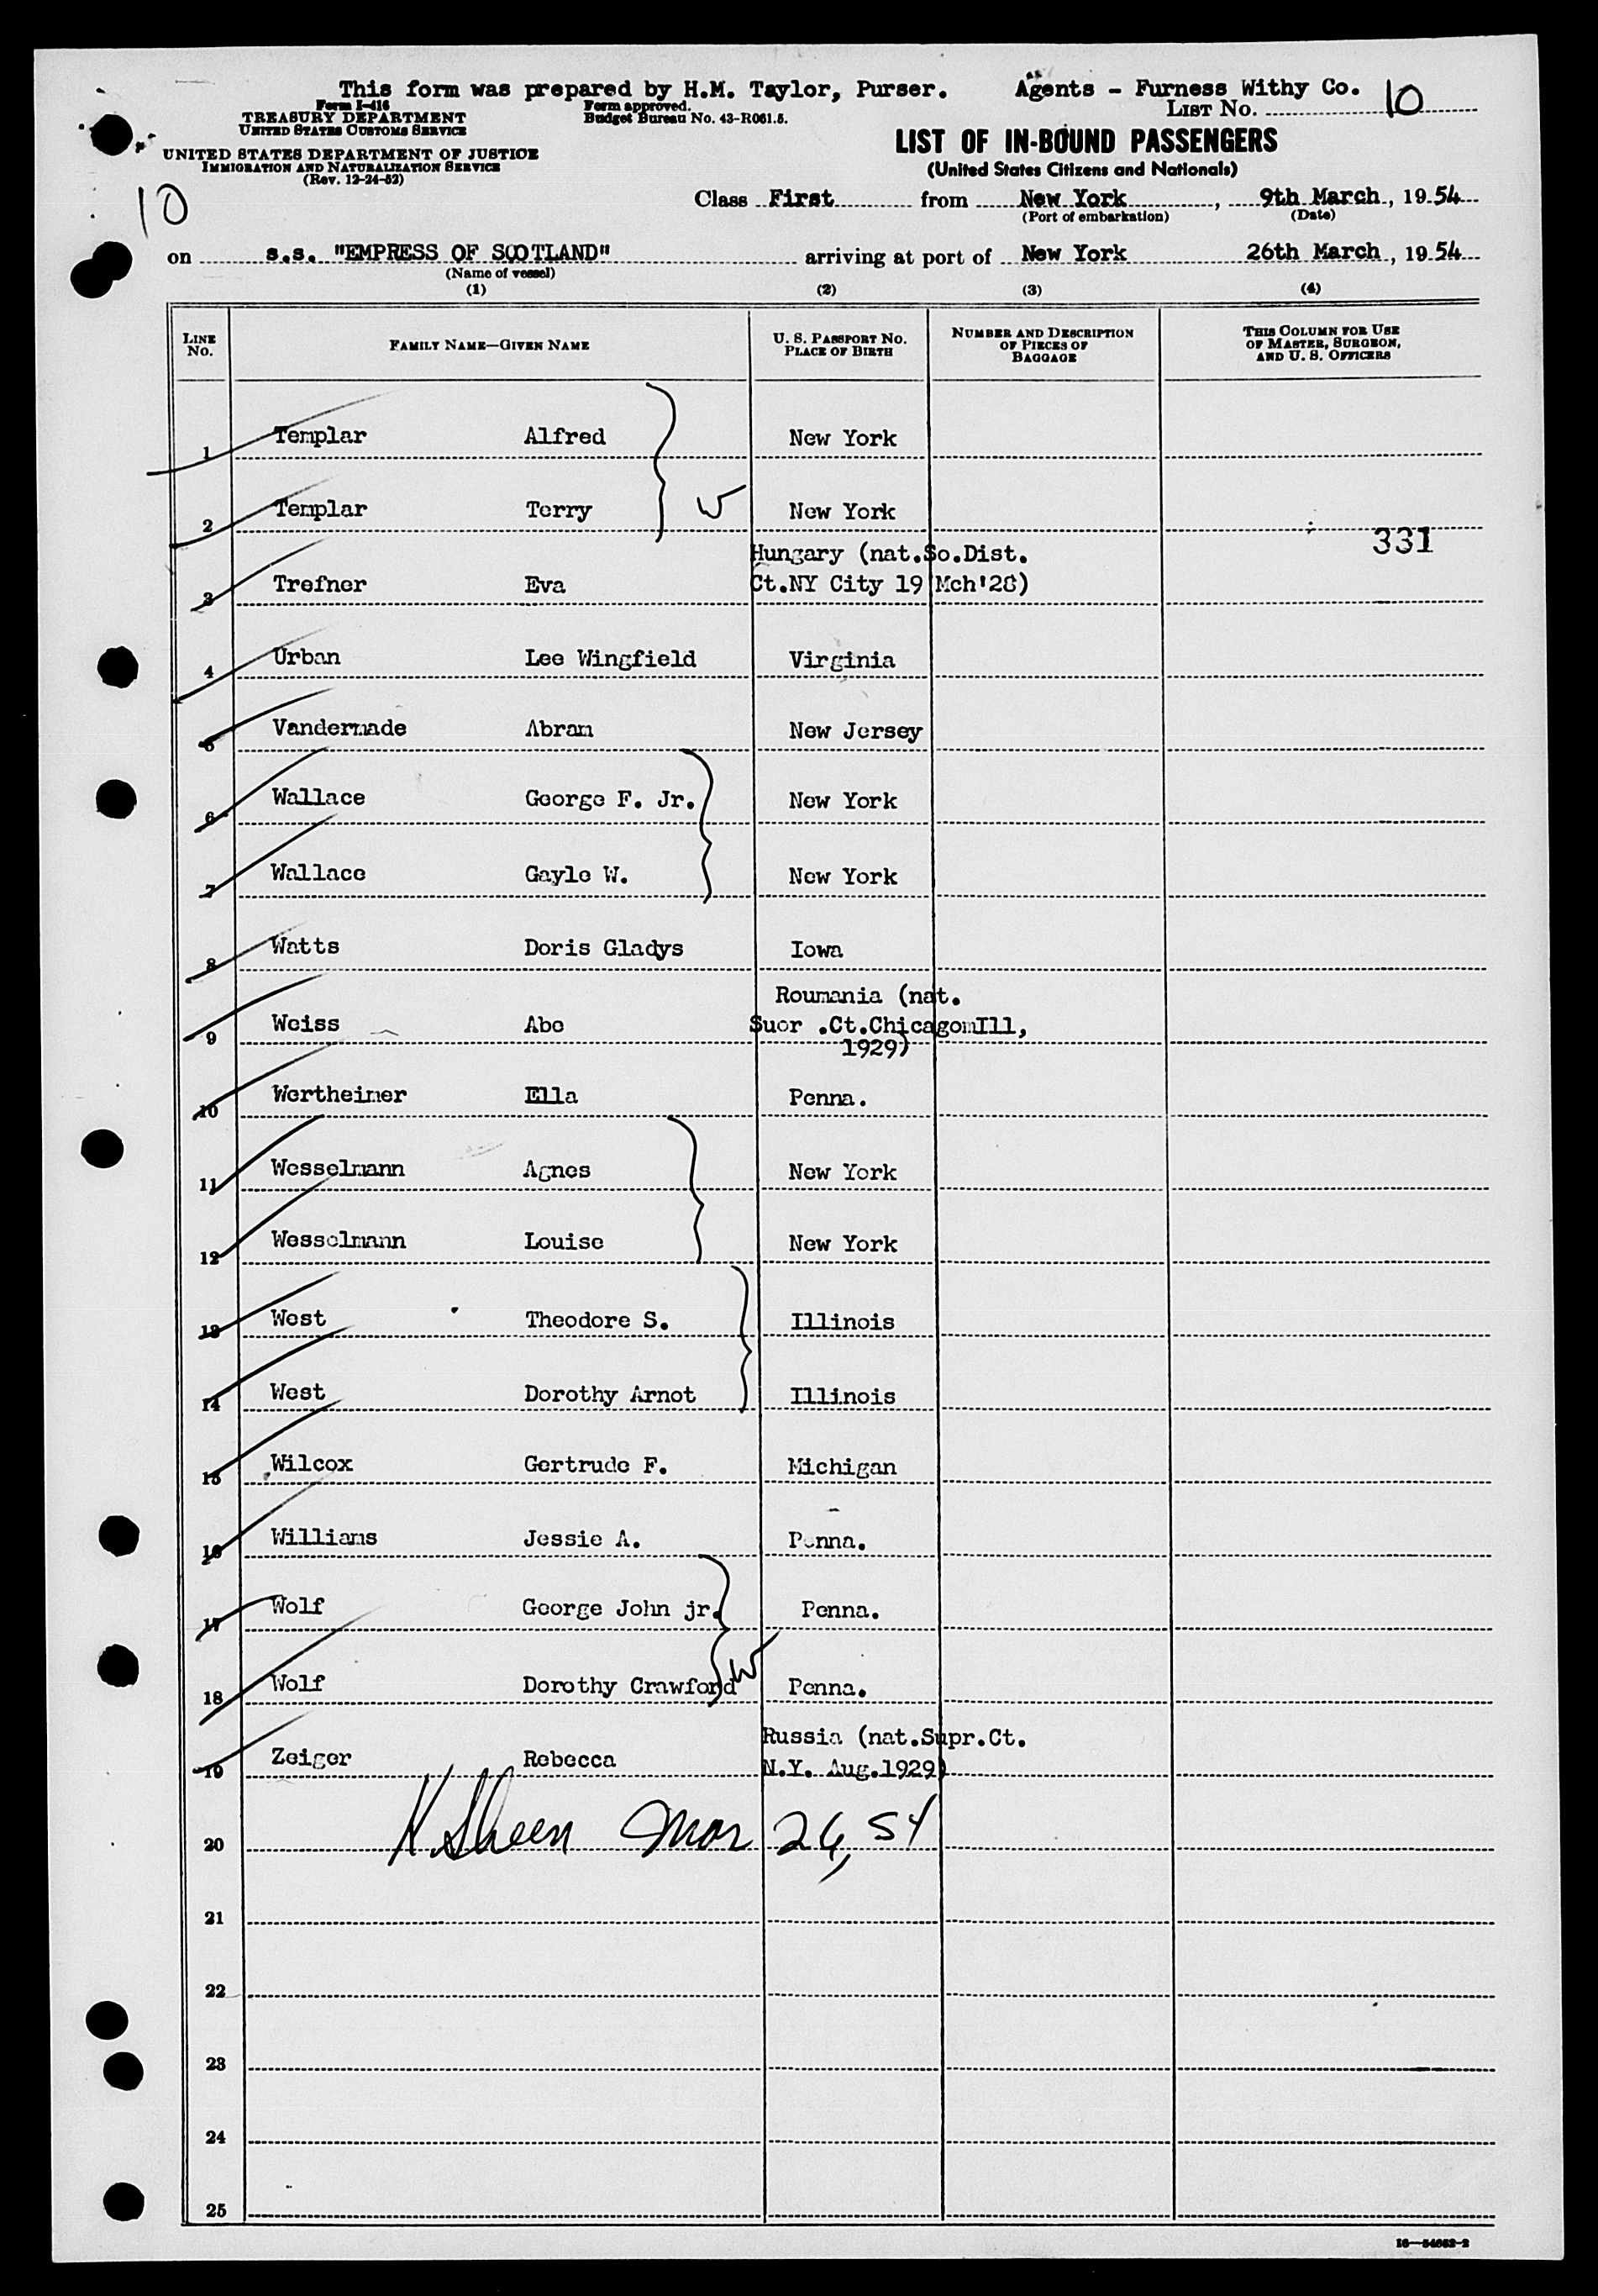 This form was prepared by H.M. Taylor, Purser. Agents - Furness Withy Co.
Form I-416
TREASURY DEPARTMENT
UNITED STATES CUSTOMS SERVICE
Form approved.
Budget Bureau No. 43-R061.5.
LIST No. 10
UNITED STATES DEPARTMENT OF JUSTICE
IMMIGRATION AND NATURALIZATION SERVICE
(Rev. 12-24-52)
LIST OF IN-BOUND PASSENGERS
(United States Citizens and Nationals)
10
Class First from New York, 9th March, 1954
(Port of embarkation) (Date)
on s.s. "EMPRESS OF SCOTLAND" arriving at port of New York 26th March, 1954
(Name of vessel)
(1) (2) (3) (4)
LINE NO.
FAMILY NAME—GIVEN NAME
U. S. PASSPORT NO.
PLACE OF BIRTH
NUMBER AND DESCRIPTION
OF PIECES OF
BAGGAGE
THIS COLUMN FOR USE
OF MASTER, SURGEON,
AND U. S. OFFICERS
1 Templar Alfred New York
2 Templar Terry W New York
331
Hungary (nat.So.Dist.
3 Trefner Eva Ct.NY City 19 Mch'28)
4 Urban Lee Wingfield Virginia
5 Vandermade Abram New Jersey
6 Wallace George F. Jr. New York
7 Wallace Gayle W. New York
8 Watts Doris Gladys Iowa
Roumania (nat.
9 Weiss Abe Suor .Ct.ChicagomIll,
1929)
10 Wertheimer Ella Penna.
11 Wesselmann Agnes New York
12 Wesselmann Louise New York
13 West Theodore S. Illinois
14 West Dorothy Arnot Illinois
15 Wilcox Gertrude F. Michigan
16 Williams Jessie A. Penna.
17 Wolf George John jr. Penna.
18 Wolf Dorothy Crawford W Penna.
Russia (nat.Supr.Ct.
19 Zeiger Rebecca N.Y. Aug.1929)
K Sheen Mar 26, 54
20
21
22
23
24
25
16—54652-2